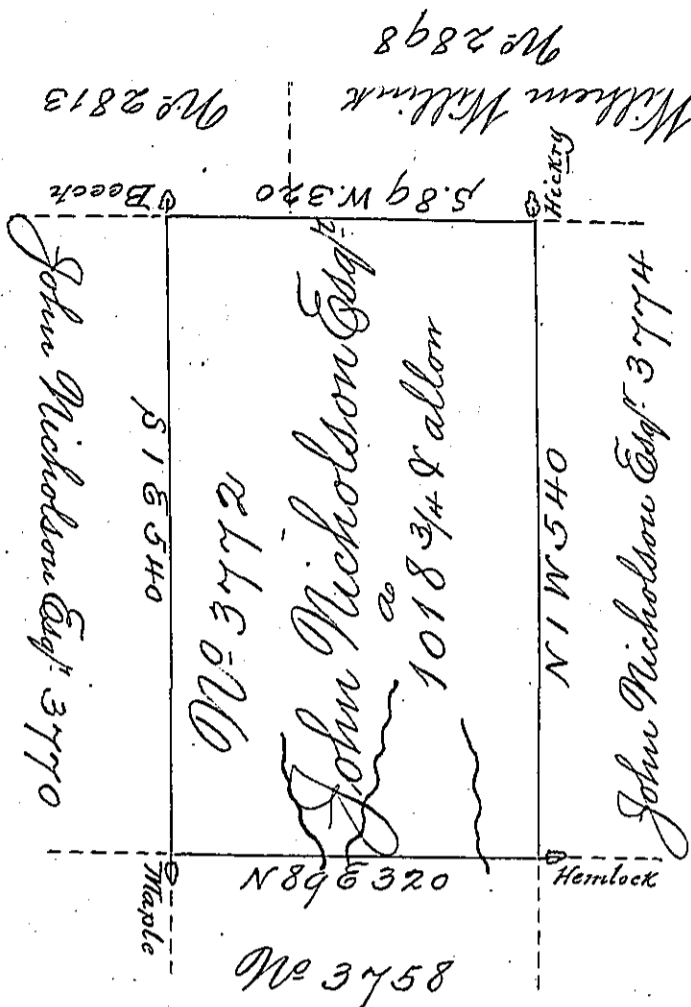 No 2898
Wilhem Willink
No 2813
Beech
S. 89 W. 320
Hickry
John Nicholson Esqr. 3770
S 1 E 540
No 3772
John Nicholson Esqr
a
1018 3/4 & allow
N 1 W 540
John Nicholson Esqr. 3774
Maple
N 89 E 320
Hemlock
No 3758